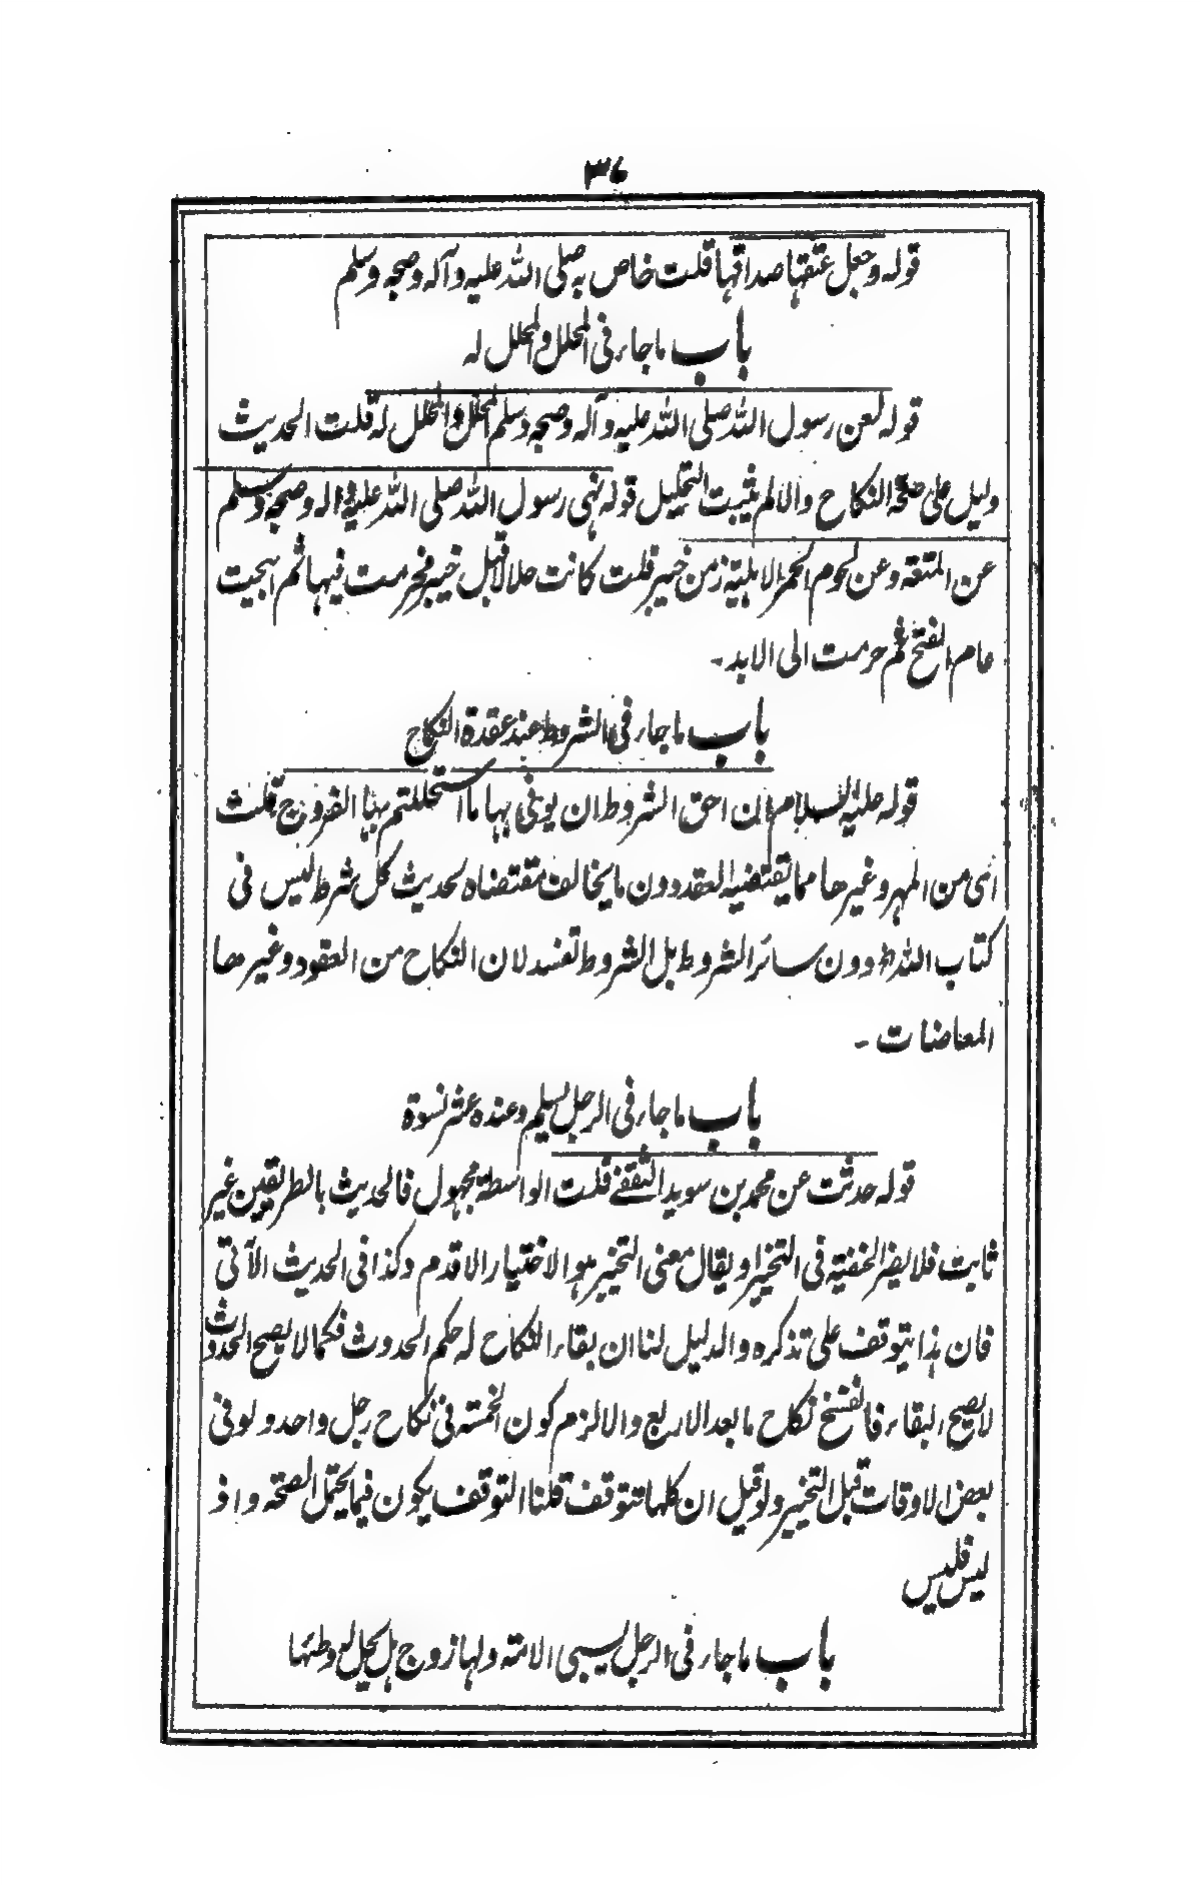 ٣٦
قوله وجعل عتقها صداقها قلت خاص به صلی الله علیه وآله وصحبه وسلم
باب ماجاء فی المحلل والمحلل له
قوله لعن رسول الله صلی الله علیه وآله وصحبه وسلم المحلل والمحلل له قلت الحدیث
دلیل علی صحة النکاح والا لم یثبت التحلیل قوله نهی رسول الله صلی الله علیه واله وصحبه وسلم
عن المتعة وعن لحوم الحمر الاهلیة زمن خیبر قلت کانت حلالا قبل خیبر فحرمت فیها ثم ابیحت
عام الفتح ثم حرمت الی الابد ـ
باب ماجاء فی الشروط عند عقدة النکاح
قوله علیه السلام ان احق الشروط ان یوفی بها ما استحللتم بها الفروج قلت
ای من المهر وغیرها مما یقتضیه العقد دون ما یخالف مقتضاه لحدیث کل شرط لیس فی
کتاب الله دون سائر الشروط بل الشروط تفسد لان النکاح من العقود وغیرها
المعاضات ـ
باب ماجاء فی الرجل یسلم وعنده عشر نسوة
قوله حدثت عن محمد بن سوید الثقفی قلت الواسطة مجهول فالحدیث بالطریقین غیر
ثابت فلا یضر الحنفیة فی التخییر او یقال معنی التخییر هو الاختیار الاقدم وکذا فی الحدیث الآتی
فان هذا یتوقف علی تذکره والدلیل لنا ان بقاء النکاح له حکم الحدوث فکما لا یصح الحدوث
لا یصح البقاء فالفسخ نکاح ما بعد الاربع والا لزم کون الخمسة فی نکاح رجل واحد ولو فی
بعض الاوقات قبل التخییر ولو قیل ان کلها تتوقف قلنا التوقف یکون فیما یحتمل الصحة واذ
لیس فلیس
باب ماجاء فی الرجل یسبی الامة ولها زوج هل یحل له وطئها